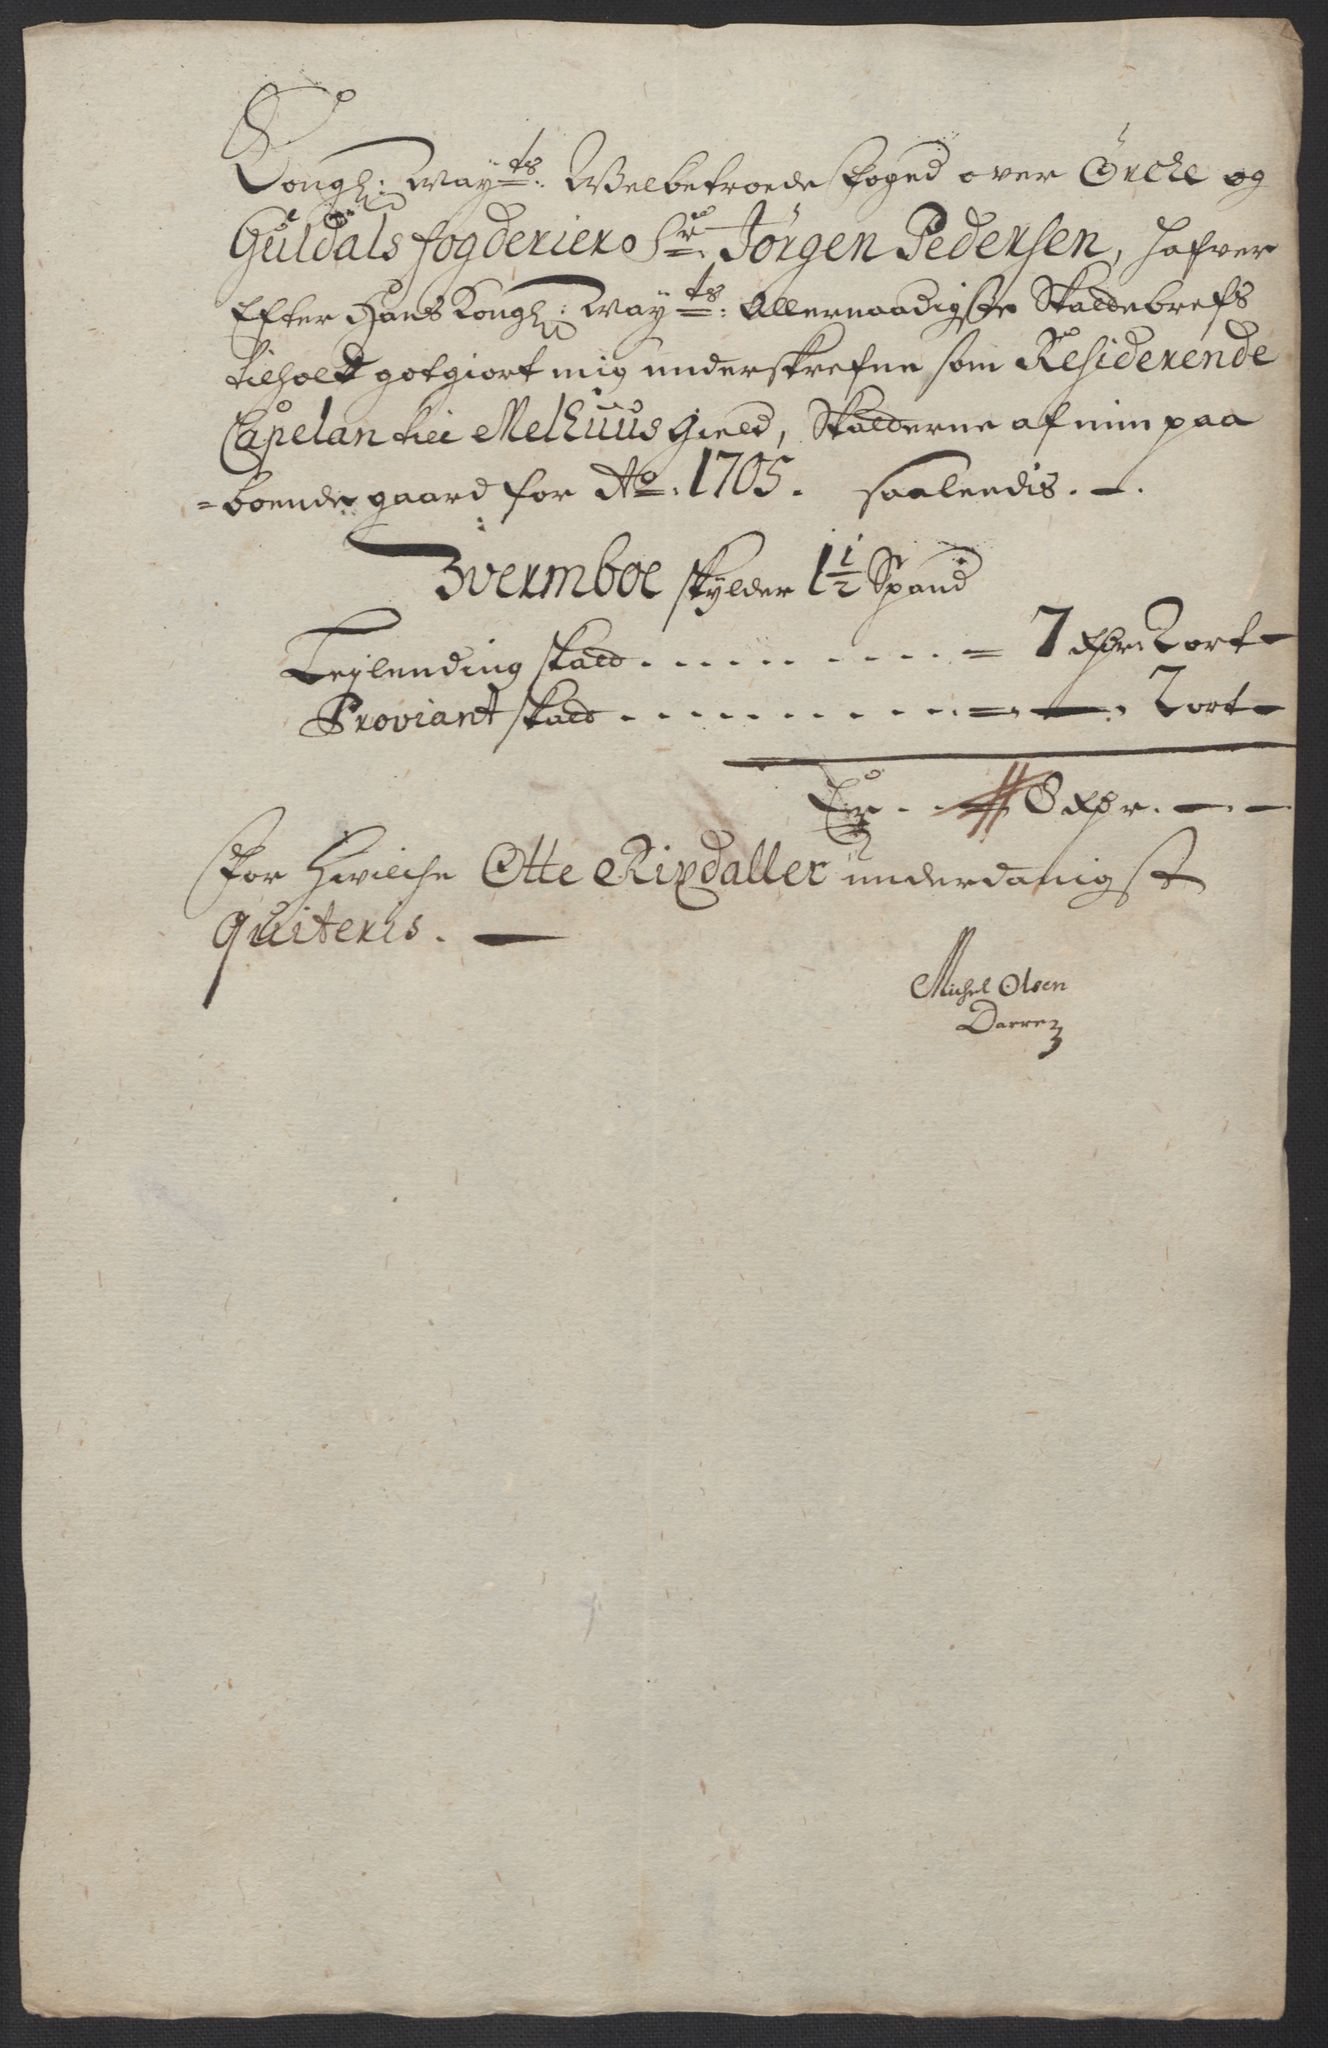 Kongl: May:ts: Welbetroede foged over Örche og
Guldals fogderier Sr. Jörgen Pedersen, hafver
Efter Hans Kongl: May:ts: Allernaadigste Skattebrefs
tilhold gotgiort mig underskrefne som Residerende
Capelan till Melhuus gield, Skatterne af min paa
=boende gaard for Ao. 1705. saaledis. —.
Evermboe skylder 1 1/2 Spand
Leylending skatt . . . . . . . . . = 7 Rdr. 2 ort —
Proviant skatt . . . . . . . . . = — . 2 ort —
Er . . 8 Rdr. — . —
For hvilche Otte Rixdaller underdanigst
quiteris. —
Michel Olsen
Darre